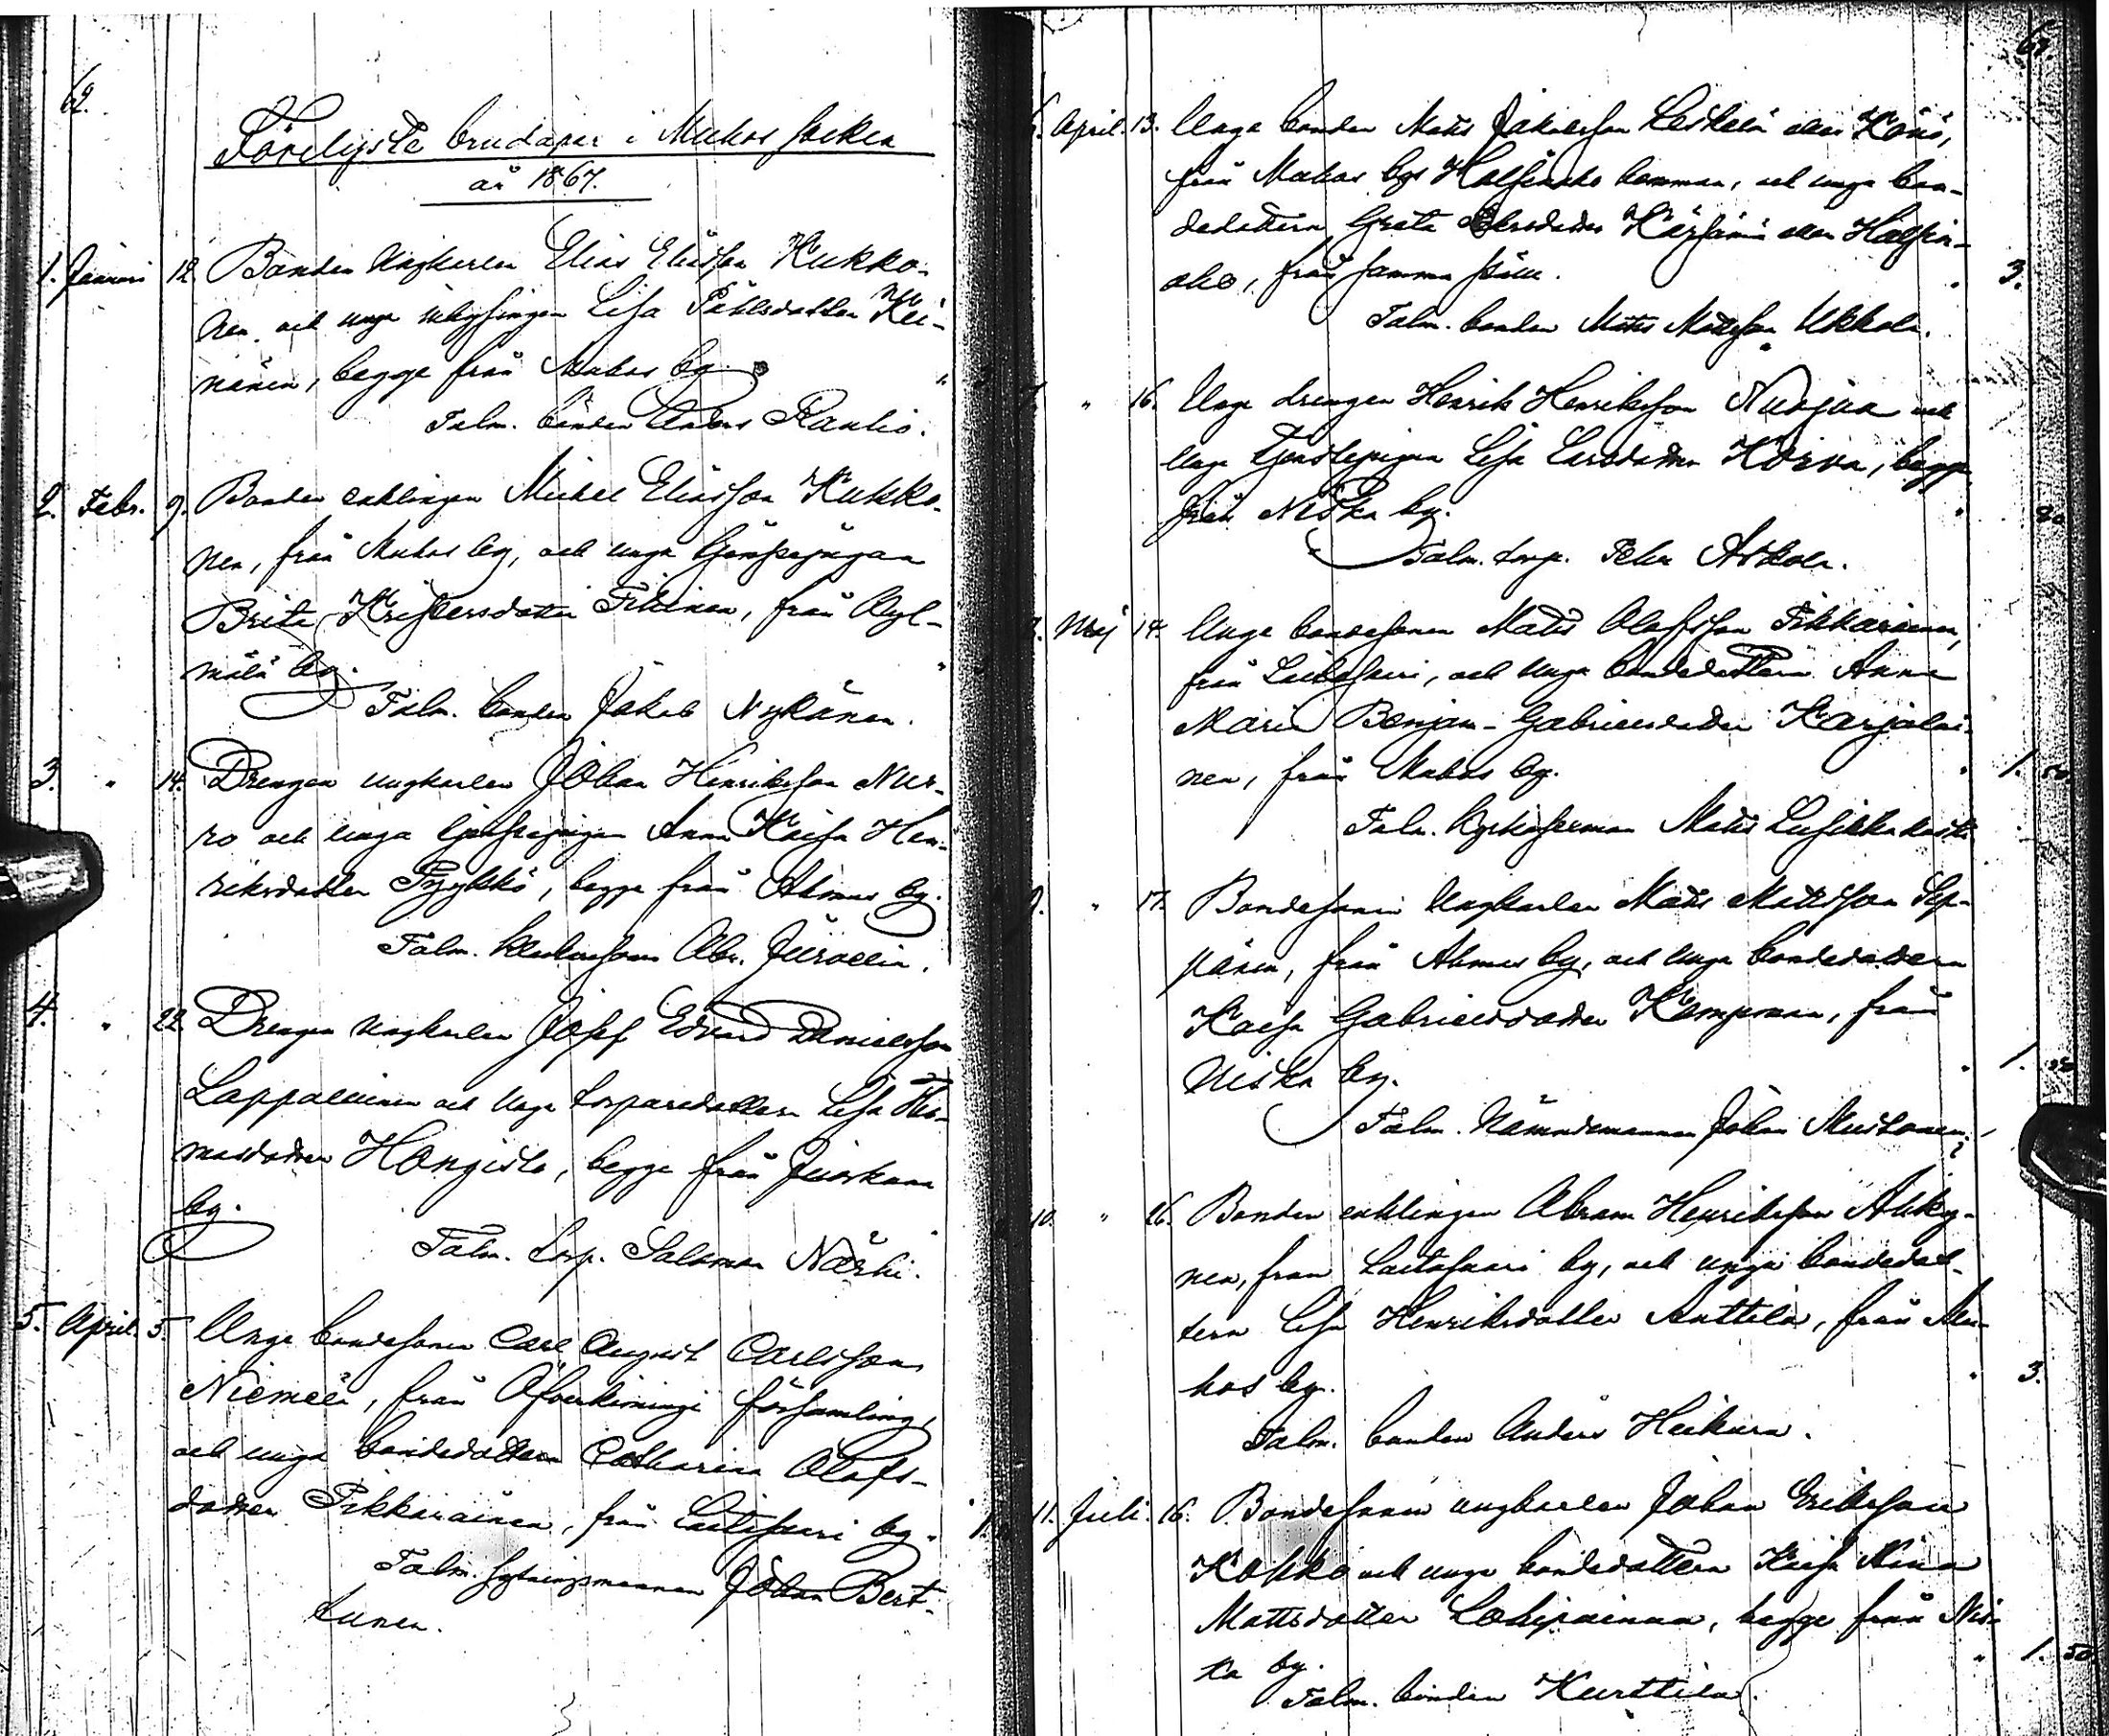 62.
Förelyste brudapar i Muhos socken
år 1867.
1. Januari 12. Bonden Ungkarlen Elias Eliasson Kukko-
nen och unga inhysingen Lisa Påhlsdotter Kei-
nänen, begge från Muhos by.
Talm. bonden Anders Raulio.
2. Febr. 9. Bonden enklingen Michel Eliasson Kukko-
nen, från Muhos by, och unga tjenstepigan
Brita Kristersdotter Tihinen, från Kyl-
mälä by.
Talm. bonden Jakob Nykänen.
3. " 14. Drengen ungkarlen Johan Henriksson Nur-
ro och unga tjenstepigan Anna Kaisa Hen-
riksdotter Pyykkö, begge från Ahmas by.
Talm. Abr. Järvelin.
4. " 22. Drengen ungkarlen Josef Edvard Danielsson
Lappalainen och unga torparedottern Lisa Tho-
masdotter Hongisto, begge från Juorkuna
by.
Talm. torp. Salomon Närhi.
5. April. 5. Unge bondesonen Carl August Carlsson
Niemelä, från Öfverkiminge församling,
och unga bondedottern Catharina Olofs-
dotter Pikkarainen, från Laitasaari by. " 1.
Talm. fjerdingsmannen Johan Bert-
tunen.
6. April. 13. Unge bonden Matts Jakobsson Leskelä eller Könö,
från Muhos bys Halfinaho hemman, och unga bon-
dedottern Greta Karsdotter eller Halfin-
aho, från samma ställe. " 3.
Talm. bonden Matts Mattsson Ukkola.
7. " 16. Unge drengen Henrik Henriksson Nuojua och
unga tjenstepigan Lisa Larsdotter Korva, begge
från Niska by. "
Talm. torp. Petter Arkola.
8. Maj 14. Unge bondesonen Matts Olofsson Pikkarainen,
från Laitasaari, och unga bondedottern Anna
Maria Benjam-Gabrielsdotter Karjalai-
nen, från Muhos by. " 1. 50
Talm. kyrkoferman Matts
9. " 17. Bondesonen Ungkarlen Matts Mattsson Sep-
pänen, från Ahmas by, och unga bondedottern
Kaisa Gabrielsdotter Kemppinen, från
Niska by. " 1. 50
Talm. Nämndemannen Johan Mustonen.
10. " 26. Bonden enklingen Abram Henriksson Ahky-
nen, från Laitasaari by, och unga bondedot-
tern Lisa Henriksdotter Anttila, från Mu-
hos by. " 3.
Talm. bonden Anders Heikura.
11. Juli. 16. Bondesonen ungkarlen Johan Eriksson
Kokko och unga bondedottern Kaisa Stina
Mattsdotter Lohipainen, begge från Nis-
ka by. " 1. 50
Talm. bonden Kurttila.